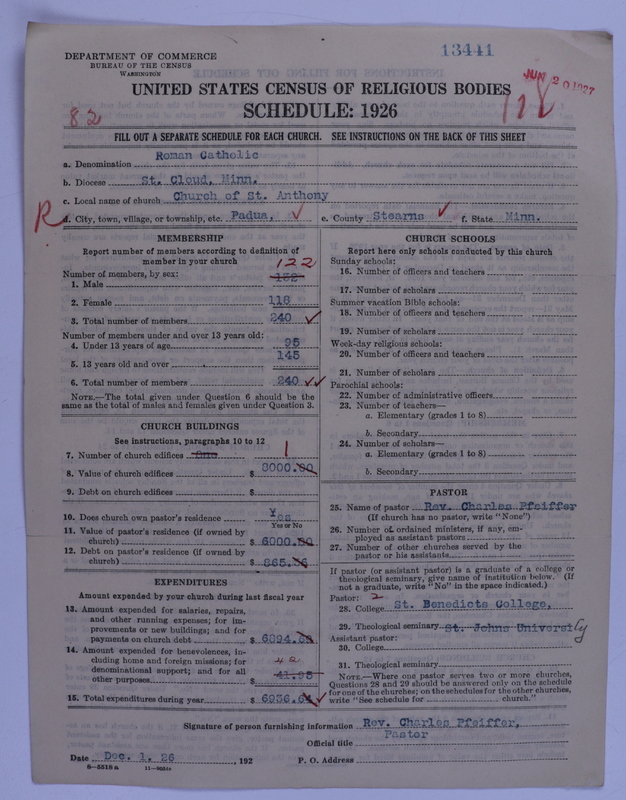 DEPARTMENT OF COMMERCE
BUREAU OF THE CENSUS
WASHINGTON
13441
JUN 20 1927
UNITED STATES CENSUS OF RELIGIOUS BODIES
SCHEDULE: 1926
82
FILL OUT A SEPARATE SCHEDULE FOR EACH CHURCH. SEE INSTRUCTIONS ON THE BACK OF THIS SHEET
a. Denomination Roman Catholic
b. Diocese St. Cloud, Minn.
c. Local name of church Church of St. Anthony
R
d. City, town, village, or township, etc. Padua, e. County Stearns f. State Minn.
MEMBERSHIP
Report number of members according to definition of
member in your church
Number of members, by sex: 122
1. Male
2. Female 118
3. Total number of members 240
Number of members under and over 13 years old:
4. Under 13 years of age 95
5. 13 years old and over 145
6. Total number of members 240
NOTE.—The total given under Question 6 should be the
same as the total of males and females given under Question 3.
CHURCH BUILDINGS
See instructions, paragraphs 10 to 12
7. Number of church edifices One 1
8. Value of church edifices $ 8000.00
9. Debt on church edifices $
10. Does church own pastor's residence Yes
Yes or No
11. Value of pastor's residence (if owned by
church) $ 6000.00
12. Debt on pastor's residence (if owned by
church) $ 865.
EXPENDITURES
Amount expended by your church during last fiscal year
13. Amount expended for salaries, repairs,
and other running expenses; for im-
provements or new buildings; and for
payments on church debt $ 6894.
14. Amount expended for benevolences, in-
cluding home and foreign missions; for
denominational support; and for all
other purposes $ 41.95 42
15. Total expenditures during year $ 6936.
CHURCH SCHOOLS
Report here only schools conducted by this church
Sunday schools:
16. Number of officers and teachers
17. Number of scholars
Summer vacation Bible schools:
18. Number of officers and teachers
19. Number of scholars
Week-day religious schools:
20. Number of officers and teachers
21. Number of scholars
Parochial schools:
22. Number of administrative officers
23. Number of teachers—
a. Elementary (grades 1 to 8)
b. Secondary
24. Number of scholars—
a. Elementary (grades 1 to 8)
b. Secondary
PASTOR
25. Name of pastor Rev. Charles Pfeiffer
(If church has no pastor, write "None")
26. Number of ordained ministers, if any, em-
ployed as assistant pastors
27. Number of other churches served by the
pastor or his assistants
If pastor (or assistant pastor) is a graduate of a college or
theological seminary, give name of institution below. (If
not a graduate, write "No" in the space indicated.)
Pastor: 2
28. College St. Benedicts College,
29. Theological seminary St. Johns University
Assistant pastor:
30. College
31. Theological seminary
NOTE.—Where one pastor serves two or more churches,
Questions 28 and 29 should be answered only on the schedule
for one of the churches; on the schedules for the other churches,
write "See schedule for church."
Signature of person furnishing information Rev. Charles Pfeiffer,
Official title Pastor
Date Dec. 1, 26, 192 P. O. Address
8—5518 a